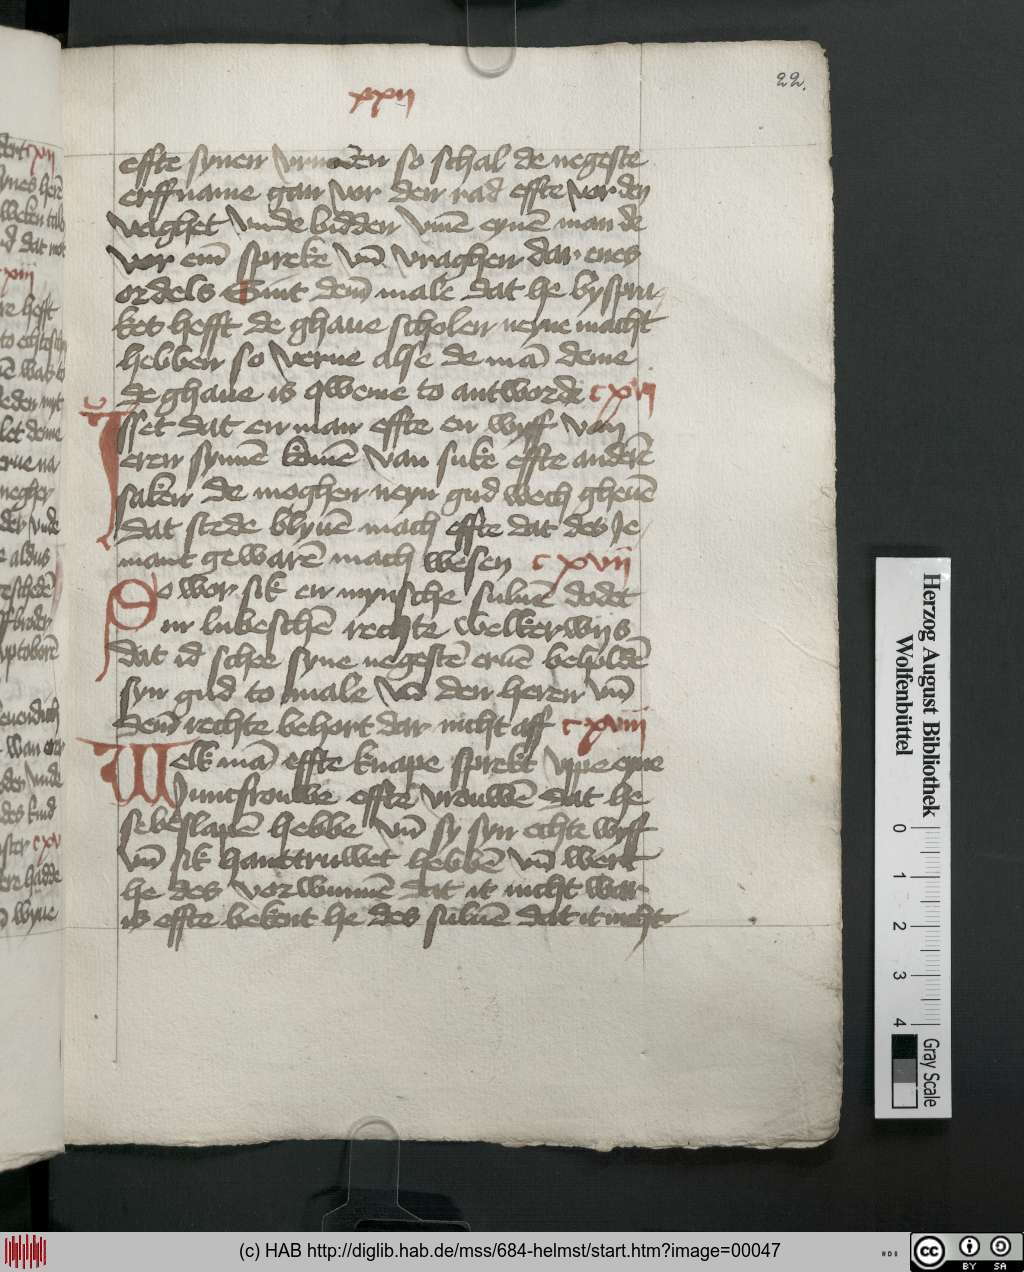 22.
xxij
effte synen vrunden so schal de negeste
erffname gan vor den rad effte vor den
voghet vnde bidden vmē eynē man de
vor em̄ spreke vn̄ vraghen dar enes
ordels Sint dem̄ male dat he byspra-
ket hefft de ghaue scholen neyne macht
hebben so verne alse de mā deme
de ghaue is qweme to antworde cxvj
Jsset dat en man effte en wyff van
eren synnē komē van suke effte anderē
saken de moghen neyn gud wech gheuē
dat stede blyuē mach effte dat des Je-
mant gewarē mach wesen cxvij
So wor sik en mynsche suluē dodet
in lubeschē rechte welkerwijs
dat id schee syne negestē eruē beholdē
syn gud to male vn̄ den heren vn̄
dem̄ rechte behort dar nicht aff cxviij
Welk mā effte knape sprekt vppe eyne
Juncfrouwe effte vrouwē dat he
se beslapē hebbe vn̄ sy syn echte wyff
vn̄ sik hanttruwet hebbē vn̄ wert
he des vorwunnē dat it nicht war
is effte bekent he des suluē dat it nicht
Herzog August Bibliothek
Wolfenbüttel
0
1
2
3
4
Gray Scale
(c) HAB http://diglib.hab.de/mss/684-helmst/start.htm?image=00047
cc BY SA